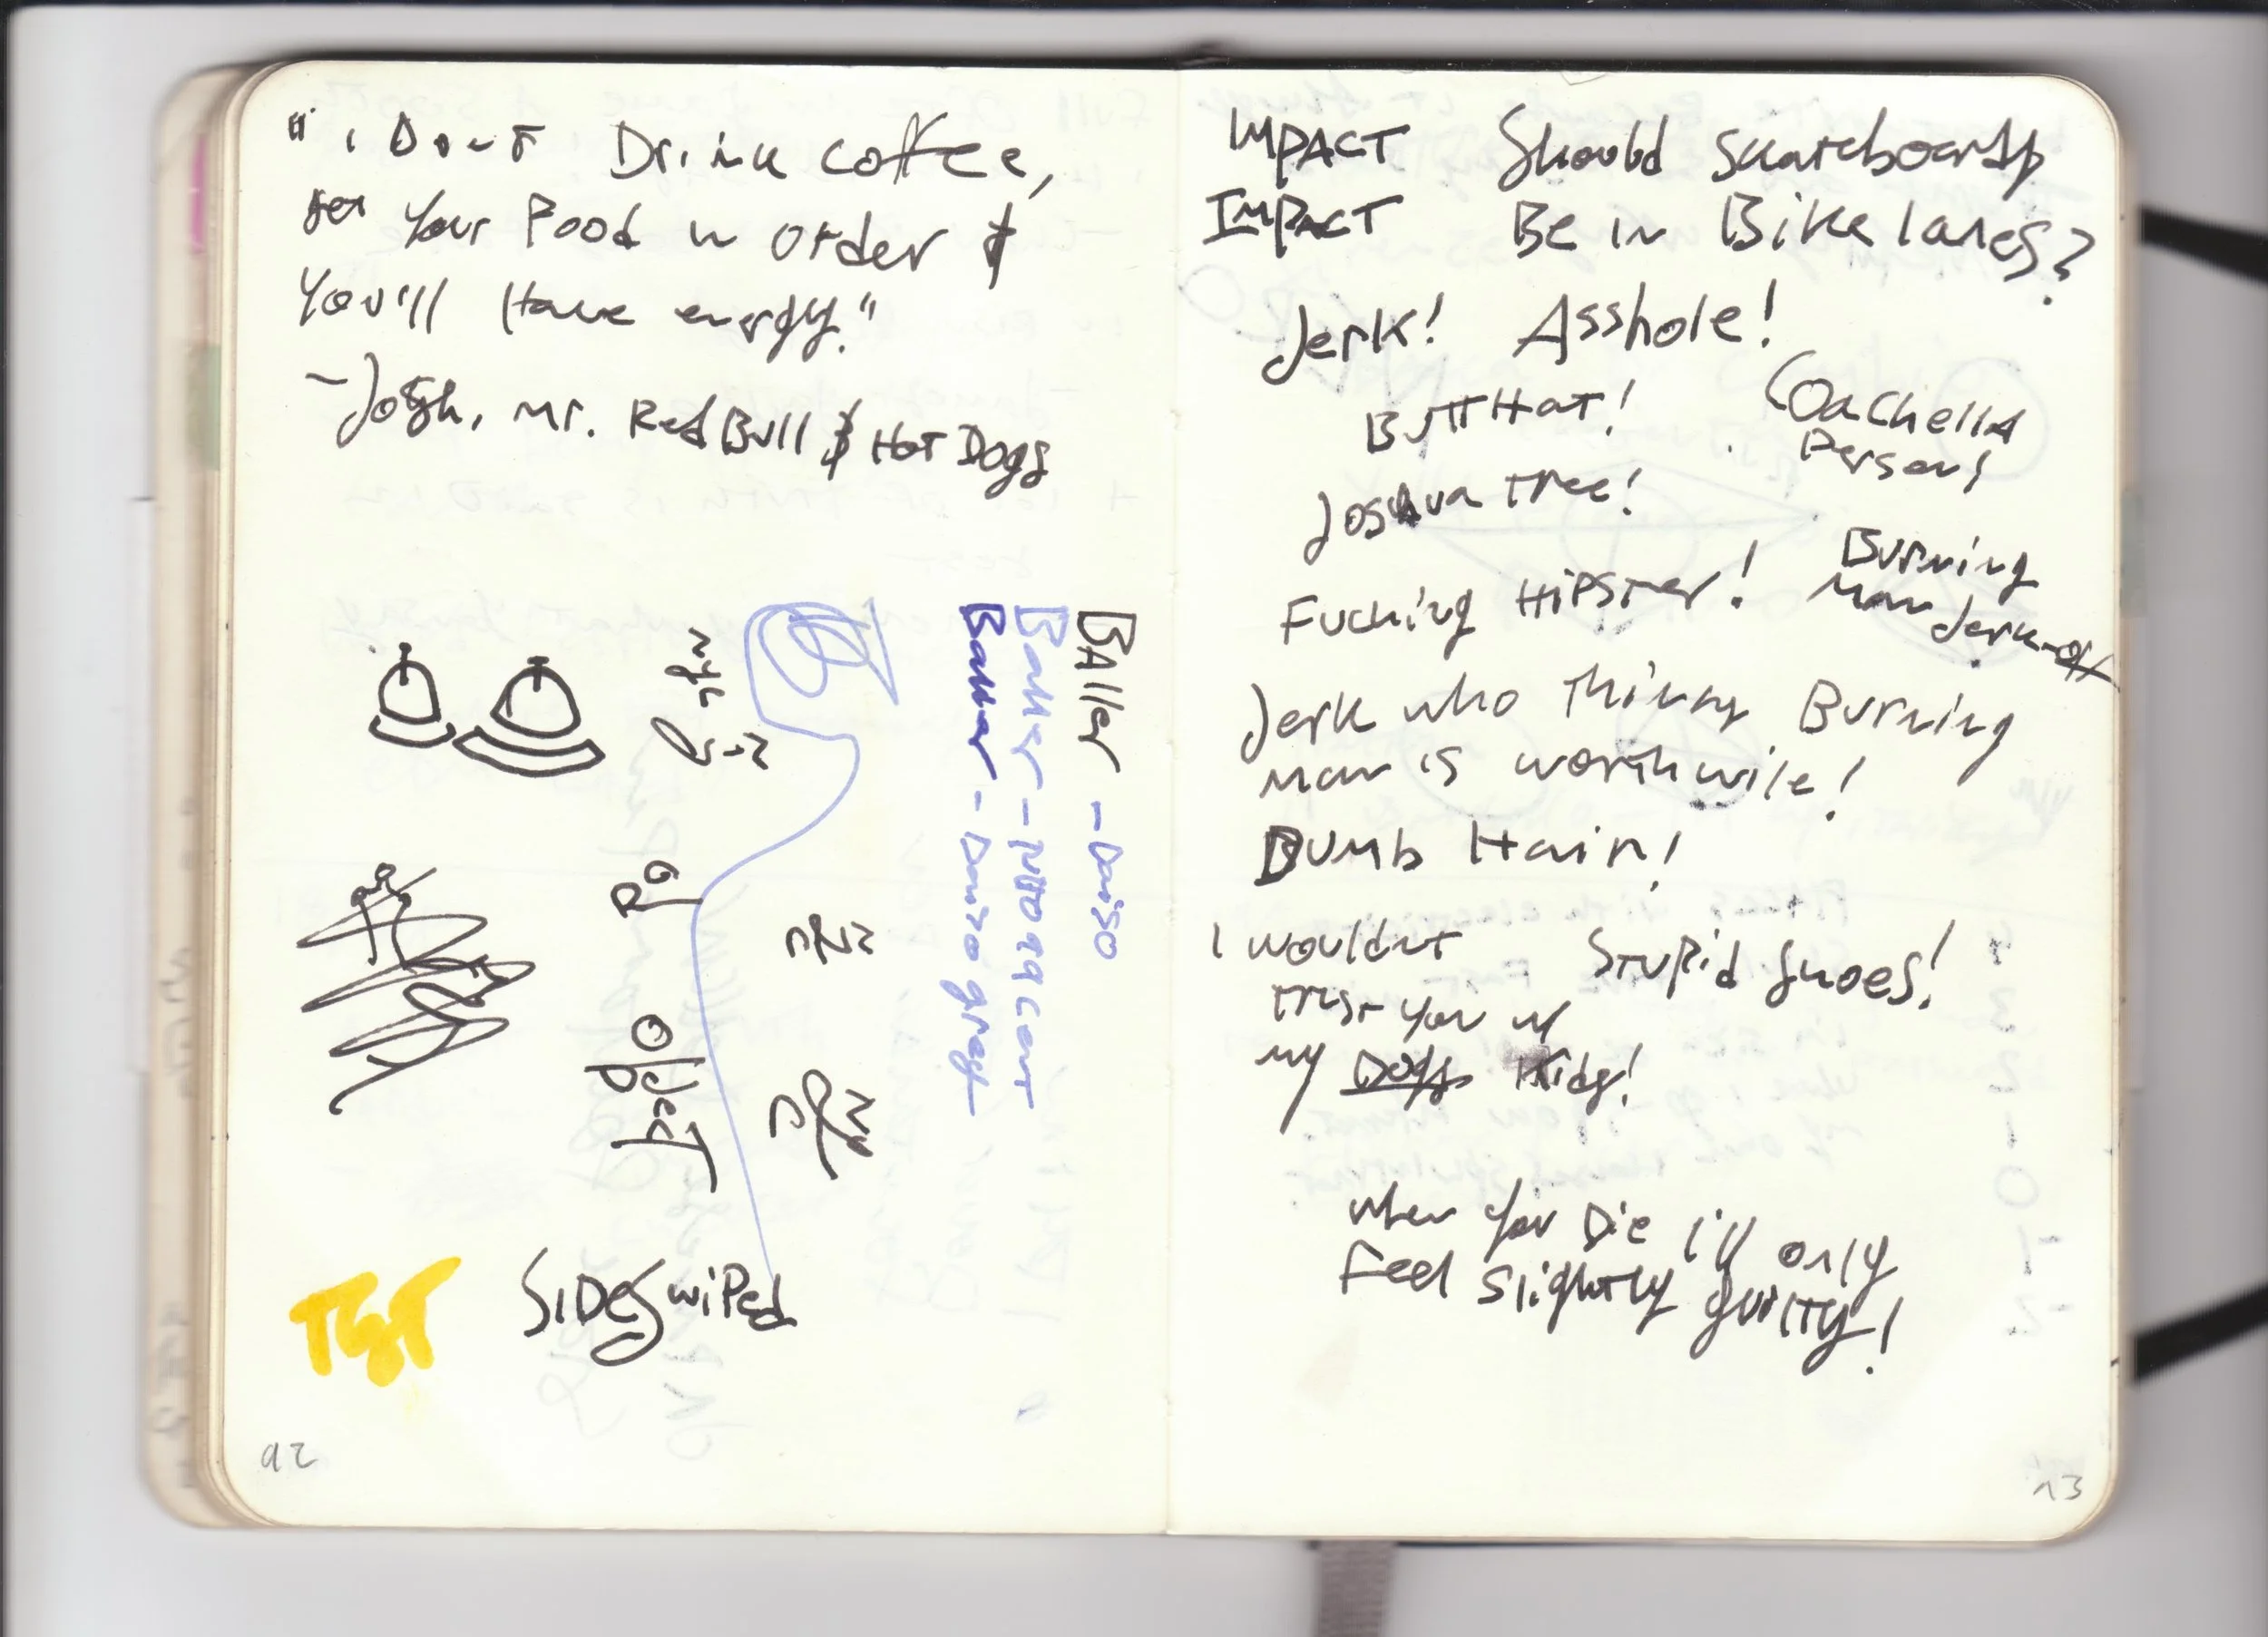 "i Don't Drink coffee,
get your Food in order &
you'll Have energy."
- Josh, Mr. Red Bull & Hot Dogs
BAller - Daiso
Baller - Daiso gray
TEST
SIDESwiPed
92
IMPACT Should Skateboards
IMPACT BE in Bike lanes?
Jerk! Asshole!
BUTTHAT! COAChella
Person!
Joshua Tree!
Fucking HiPSTer! Burning
Man Jerk-off
Jerk who Thinks Burning
Man is worthwile!
Dumb Hair!
I wouldnt Stupid Shoes!
trust you w/
my Dogs Kids!
when you Die i'll only
Feel Slightly guilty!